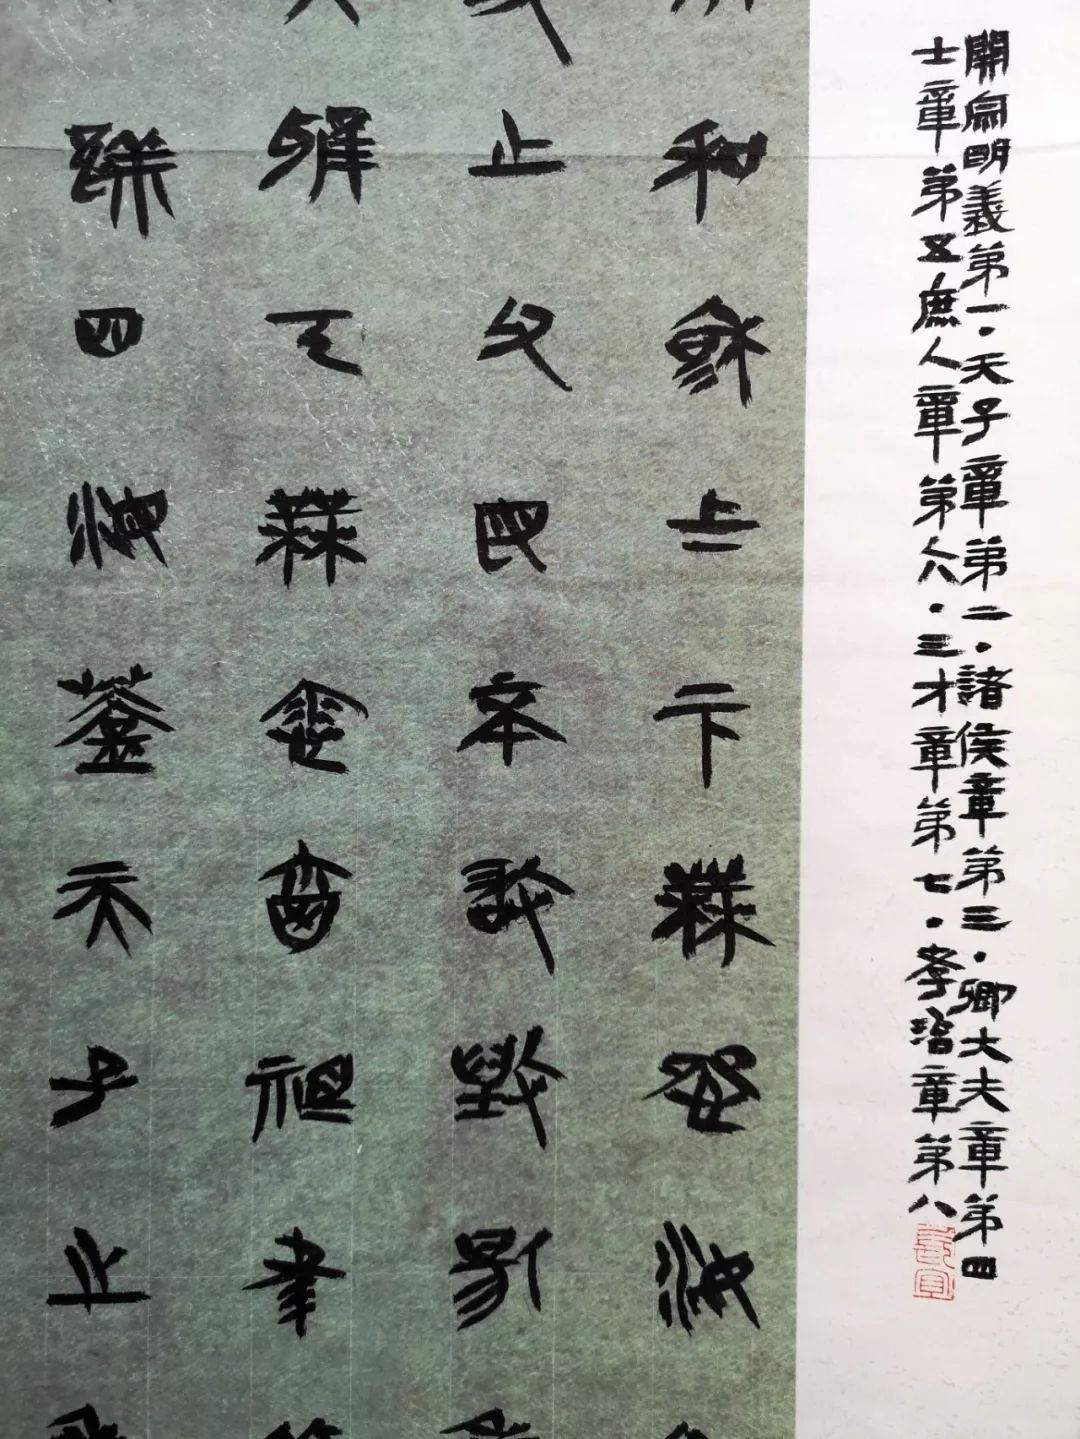 開宗明義第一·天子章第二·諸侯章第三·卿大夫章第四
士章第五庶人章第六·三才章第七·孝治章第八
和睦上下無怨汝
之父母不敢毀傷
雅云無念爾祖聿
四海蓋天子之